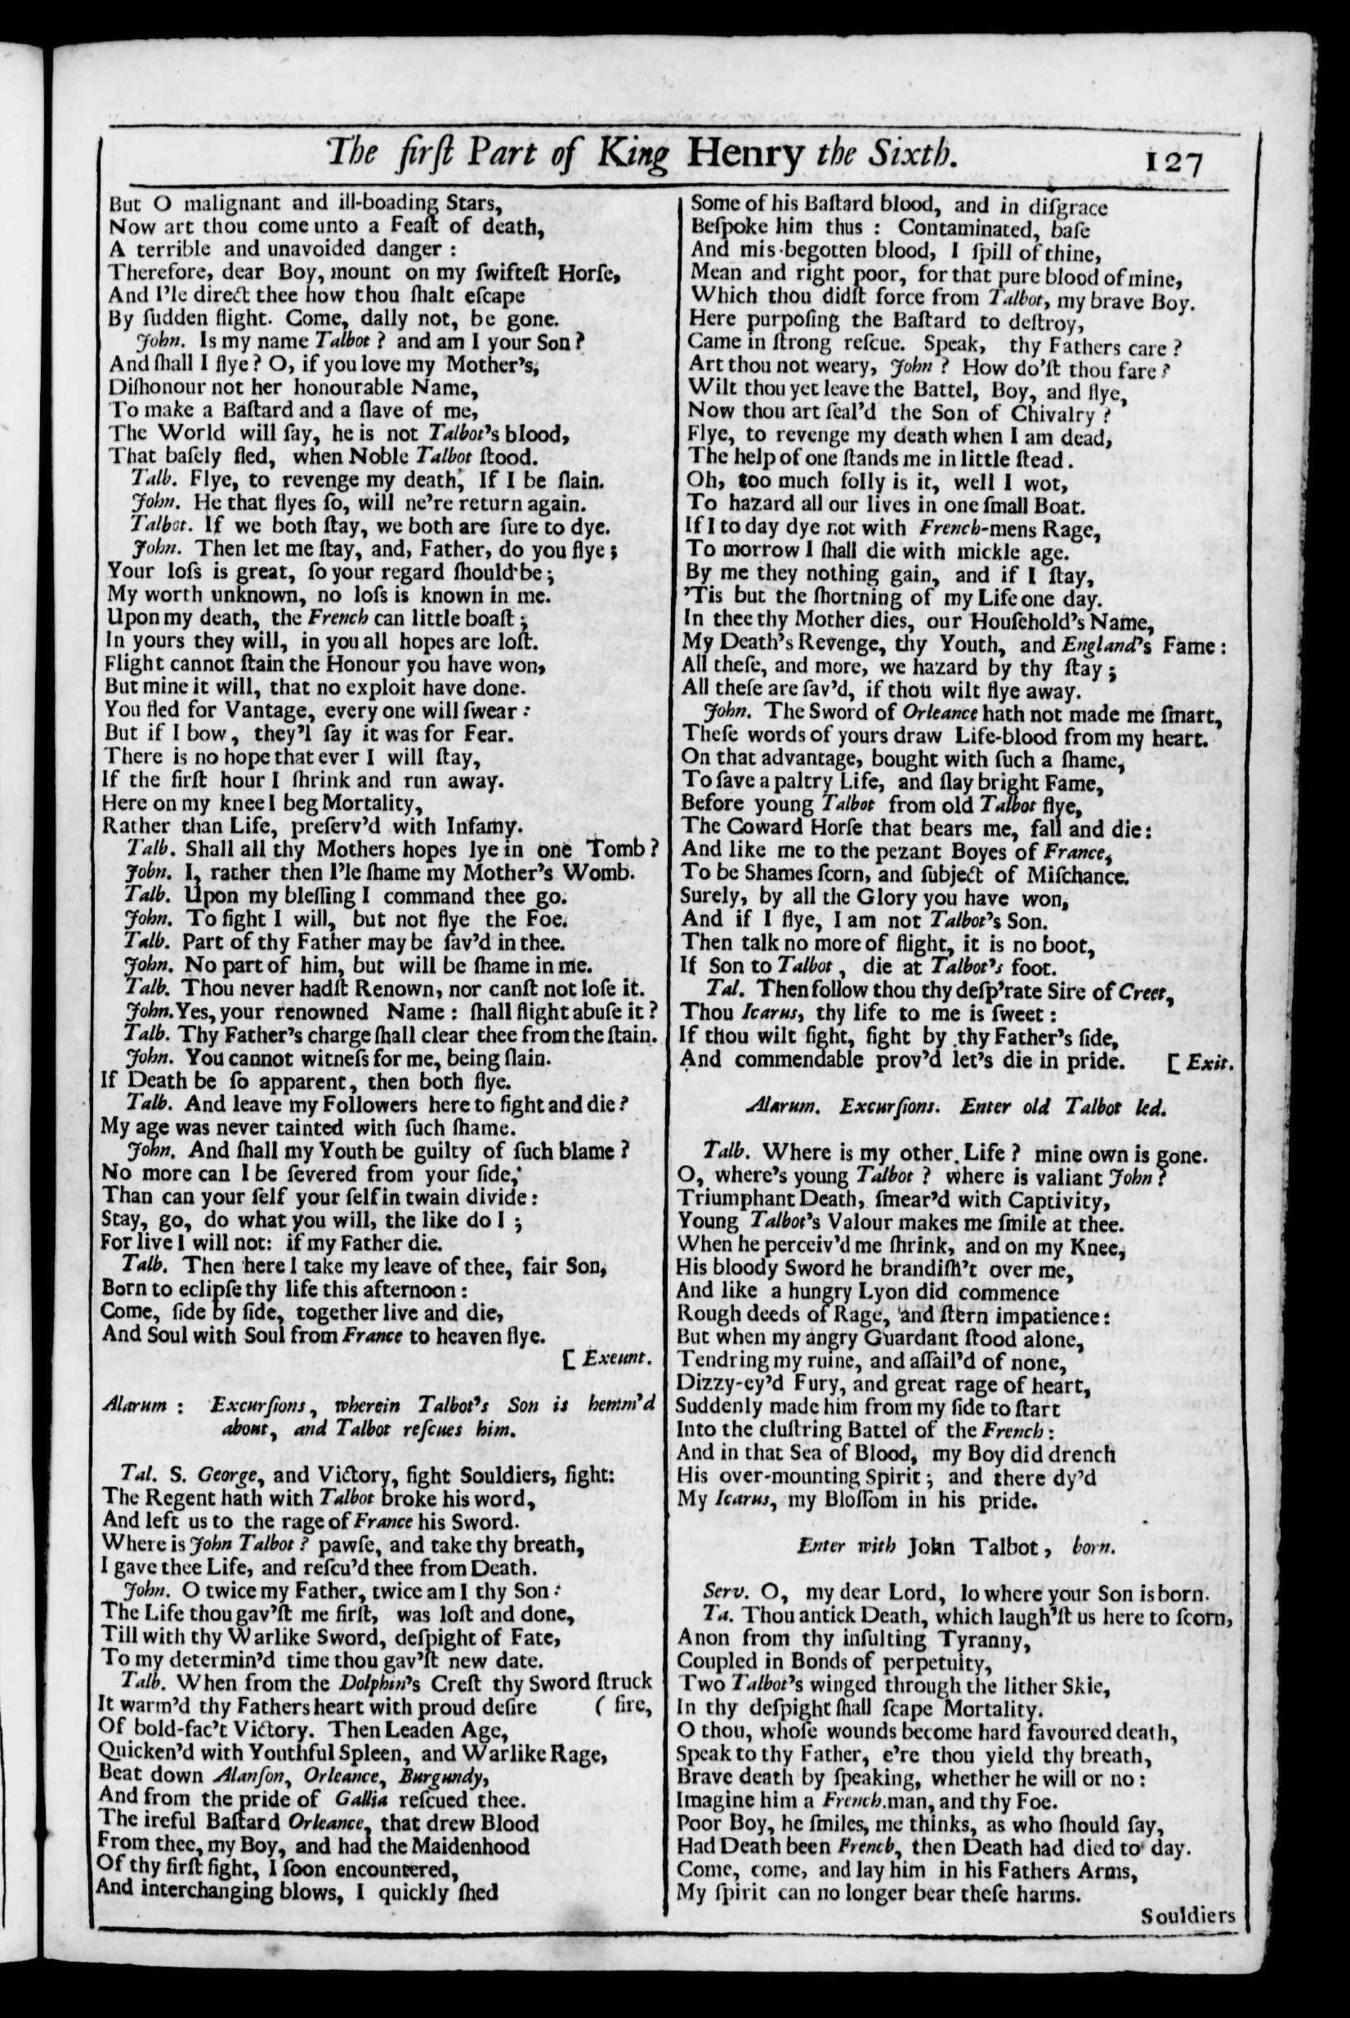 The firſt Part of King Henry the Sixth. 127
But O malignant and ill-boading Stars,
Now art thou come unto a Feaſt of death,
A terrible and unavoided danger :
Therefore, dear Boy, mount on my ſwifteſt Horſe,
And I'le direct thee how thou ſhalt eſcape
By ſudden flight. Come, dally not, be gone.
John. Is my name Talbot ? and am I your Son ?
And ſhall I flye ? O, if you love my Mother's,
Diſhonour not her honourable Name,
To make a Baſtard and a ſlave of me,
The World will ſay, he is not Talbot's blood,
That baſely fled, when Noble Talbot ſtood.
Talb. Flye, to revenge my death, If I be ſlain.
John. He that flyes ſo, will ne're return again.
Talbot. If we both ſtay, we both are ſure to dye.
John. Then let me ſtay, and, Father, do you flye ;
Your loſs is great, ſo your regard ſhould be ;
My worth unknown, no loſs is known in me.
Upon my death, the French can little boaſt ;
In yours they will, in you all hopes are loſt.
Flight cannot ſtain the Honour you have won,
But mine it will, that no exploit have done.
You fled for Vantage, every one will ſwear :
But if I bow, they'l ſay it was for Fear.
There is no hope that ever I will ſtay,
If the firſt hour I ſhrink and run away.
Here on my knee I beg Mortality,
Rather than Life, preſerv'd with Infamy.
Talb. Shall all thy Mothers hopes lye in one Tomb ?
John. I, rather then I'le ſhame my Mother's Womb.
Talb. Upon my bleſſing I command thee go.
John. To fight I will, but not flye the Foe.
Talb. Part of thy Father may be ſav'd in thee.
John. No part of him, but will be ſhame in me.
Talb. Thou never hadſt Renown, nor canſt not loſe it.
John. Yes, your renowned Name : ſhall flight abuſe it ?
Talb. Thy Father's charge ſhall clear thee from the ſtain.
John. You cannot witneſs for me, being ſlain.
If Death be ſo apparent, then both flye.
Talb. And leave my Followers here to fight and die ?
My age was never tainted with ſuch ſhame.
John. And ſhall my Youth be guilty of ſuch blame ?
No more can I be ſevered from your ſide,
Than can your ſelf your ſelf in twain divide :
Stay, go, do what you will, the like do I ;
For live I will not: if my Father die.
Talb. Then here I take my leave of thee, fair Son,
Born to eclipſe thy life this afternoon :
Come, ſide by ſide, together live and die,
And Soul with Soul from France to heaven flye.
[ Exeunt.
Alarum : Excurſions, wherein Talbot's Son is hemm'd
about, and Talbot reſcues him.
Tal. S. George, and Victory, fight Souldiers, fight:
The Regent hath with Talbot broke his word,
And left us to the rage of France his Sword.
Where is John Talbot ? pawſe, and take thy breath,
I gave thee Life, and reſcu'd thee from Death.
John. O twice my Father, twice am I thy Son :
The Life thou gav'ſt me firſt, was loſt and done,
Till with thy Warlike Sword, deſpight of Fate,
To my determin'd time thou gav'ſt new date.
Talb. When from the Dolphin's Creſt thy Sword ſtruck
It warm'd thy Fathers heart with proud deſire ( fire,
Of bold-fac't Victory. Then Leaden Age,
Quicken'd with Youthful Spleen, and Warlike Rage,
Beat down Alanſon, Orleance, Burgundy,
And from the pride of Gallia reſcued thee.
The ireful Baſtard Orleance, that drew Blood
From thee, my Boy, and had the Maidenhood
Of thy firſt fight, I ſoon encountered,
And interchanging blows, I quickly ſhed
Some of his Baſtard blood, and in diſgrace
Beſpoke him thus : Contaminated, baſe
And mis-begotten blood, I ſpill of thine,
Mean and right poor, for that pure blood of mine,
Which thou didſt force from Talbot, my brave Boy.
Here purpoſing the Baſtard to deſtroy,
Came in ſtrong reſcue. Speak, thy Fathers care ?
Art thou not weary, John ? How do'ſt thou fare ?
Wilt thou yet leave the Battel, Boy, and flye,
Now thou art ſeal'd the Son of Chivalry ?
Flye, to revenge my death when I am dead,
The help of one ſtands me in little ſtead.
Oh, too much folly is it, well I wot,
To hazard all our lives in one ſmall Boat.
If I to day dye not with French-mens Rage,
To morrow I ſhall die with mickle age.
By me they nothing gain, and if I ſtay,
'Tis but the ſhortning of my Life one day.
In thee thy Mother dies, our Houſehold's Name,
My Death's Revenge, thy Youth, and England's Fame :
All theſe, and more, we hazard by thy ſtay ;
All theſe are ſav'd, if thou wilt flye away.
John. The Sword of Orleance hath not made me ſmart,
Theſe words of yours draw Life-blood from my heart.
On that advantage, bought with ſuch a ſhame,
To ſave a paltry Life, and ſlay bright Fame,
Before young Talbot from old Talbot flye,
The Coward Horſe that bears me, fall and die :
And like me to the pezant Boyes of France,
To be Shames ſcorn, and ſubject of Miſchance.
Surely, by all the Glory you have won,
And if I flye, I am not Talbot's Son.
Then talk no more of flight, it is no boot,
If Son to Talbot, die at Talbot's foot.
Tal. Then follow thou thy deſp'rate Sire of Creet,
Thou Icarus, thy life to me is ſweet :
If thou wilt fight, fight by thy Father's ſide,
And commendable prov'd let's die in pride. [ Exit.
Alarum. Excurſions. Enter old Talbot led.
Talb. Where is my other Life ? mine own is gone.
O, where's young Talbot ? where is valiant John ?
Triumphant Death, ſmear'd with Captivity,
Young Talbot's Valour makes me ſmile at thee.
When he perceiv'd me ſhrink, and on my Knee,
His bloody Sword he brandiſh't over me,
And like a hungry Lyon did commence
Rough deeds of Rage, and ſtern impatience :
But when my angry Guardant ſtood alone,
Tendring my ruine, and aſſail'd of none,
Dizzy-ey'd Fury, and great rage of heart,
Suddenly made him from my ſide to ſtart
Into the cluſtring Battel of the French :
And in that Sea of Blood, my Boy did drench
His over-mounting Spirit ; and there dy'd
My Icarus, my Bloſſom in his pride.
Enter with John Talbot, born.
Serv. O, my dear Lord, lo where your Son is born.
Ta. Thou antick Death, which laugh'ſt us here to ſcorn,
Anon from thy inſulting Tyranny,
Coupled in Bonds of perpetuity,
Two Talbot's winged through the lither Skie,
In thy deſpight ſhall ſcape Mortality.
O thou, whoſe wounds become hard favoured death,
Speak to thy Father, e're thou yield thy breath,
Brave death by ſpeaking, whether he will or no :
Imagine him a French.man, and thy Foe.
Poor Boy, he ſmiles, me thinks, as who ſhould ſay,
Had Death been French, then Death had died to day.
Come, come, and lay him in his Fathers Arms,
My ſpirit can no longer bear theſe harms.
Souldiers